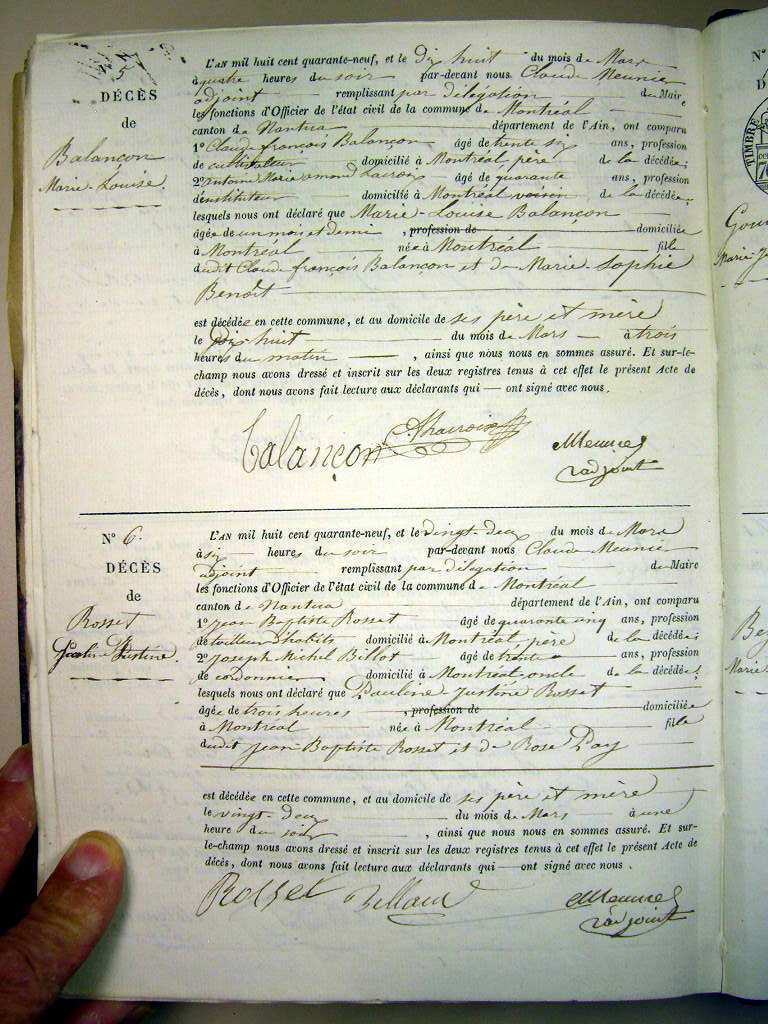 5
DÉCÈS
de
Balançon
Marie-Louise.
L'AN mil huit cent quarante-neuf, et le dix huit du mois de Mars
à quatre heures du soir par-devant nous Claude Meunier
adjoint remplissant par délégation de Maire
les fonctions d'Officier de l'état civil de la commune de Montréal
canton de Nantua département de l'Ain, ont comparu
1° Claude françois Balançon âgé de trente six ans, profession
de cultivateur domicilié à Montréal père de la décédée;
2° antoine Marie amond âgé de quarante ans, profession
d'instituteur domicilié à Montréal voisin de la décédée;
lesquels nous ont déclaré que Marie-Louise Balançon
âgée de un mois et demi , profession de domiciliée
à Montréal née à Montréal fille
dudit Claude françois Balançon et de Marie-Sophie
Benoît
est décédée en cette commune, et au domicile de ses père et mère
le dix huit du mois de Mars à trois
heures du matin , ainsi que nous nous en sommes assuré. Et sur-le-
champ nous avons dressé et inscrit sur les deux registres tenus à cet effet le présent Acte de
décès, dont nous avons fait lecture aux déclarants qui — ont signé avec nous.
Balançon
Meunier
adjoint
N° 6.
DÉCÈS
de
Rosset
Pauline Justine.
L'AN mil huit cent quarante-neuf, et le vingt-deux du mois de Mars
à six heures du soir par-devant nous Claude Meunier
adjoint remplissant par délégation de Maire
les fonctions d'Officier de l'état civil de la commune de Montréal
canton de Nantua département de l'Ain, ont comparu
1° Jean Baptiste Rosset âgé de quarante cinq ans, profession
de tailleur d'habits domicilié à Montréal père de la décédée;
2° Joseph Michel Billot âgé de trente ans, profession
de cordonnier domicilié à Montréal oncle de la décédée;
lesquels nous ont déclaré que Pauline-Justine Rosset
âgée de trois heures , profession de domiciliée
à Montréal née à Montréal fille
dudit Jean Baptiste Rosset et de Rose
est décédée en cette commune, et au domicile de ses père et mère
le vingt-deux du mois de Mars à une
heure du soir , ainsi que nous nous en sommes assuré. Et sur-
le-champ nous avons dressé et inscrit sur les deux registres tenus à cet effet le présent Acte de
décès, dont nous avons fait lecture aux déclarants qui — ont signé avec nous.
Rosset
Meunier
adjoint
N°
D
TIMBRE
Marie
Marie